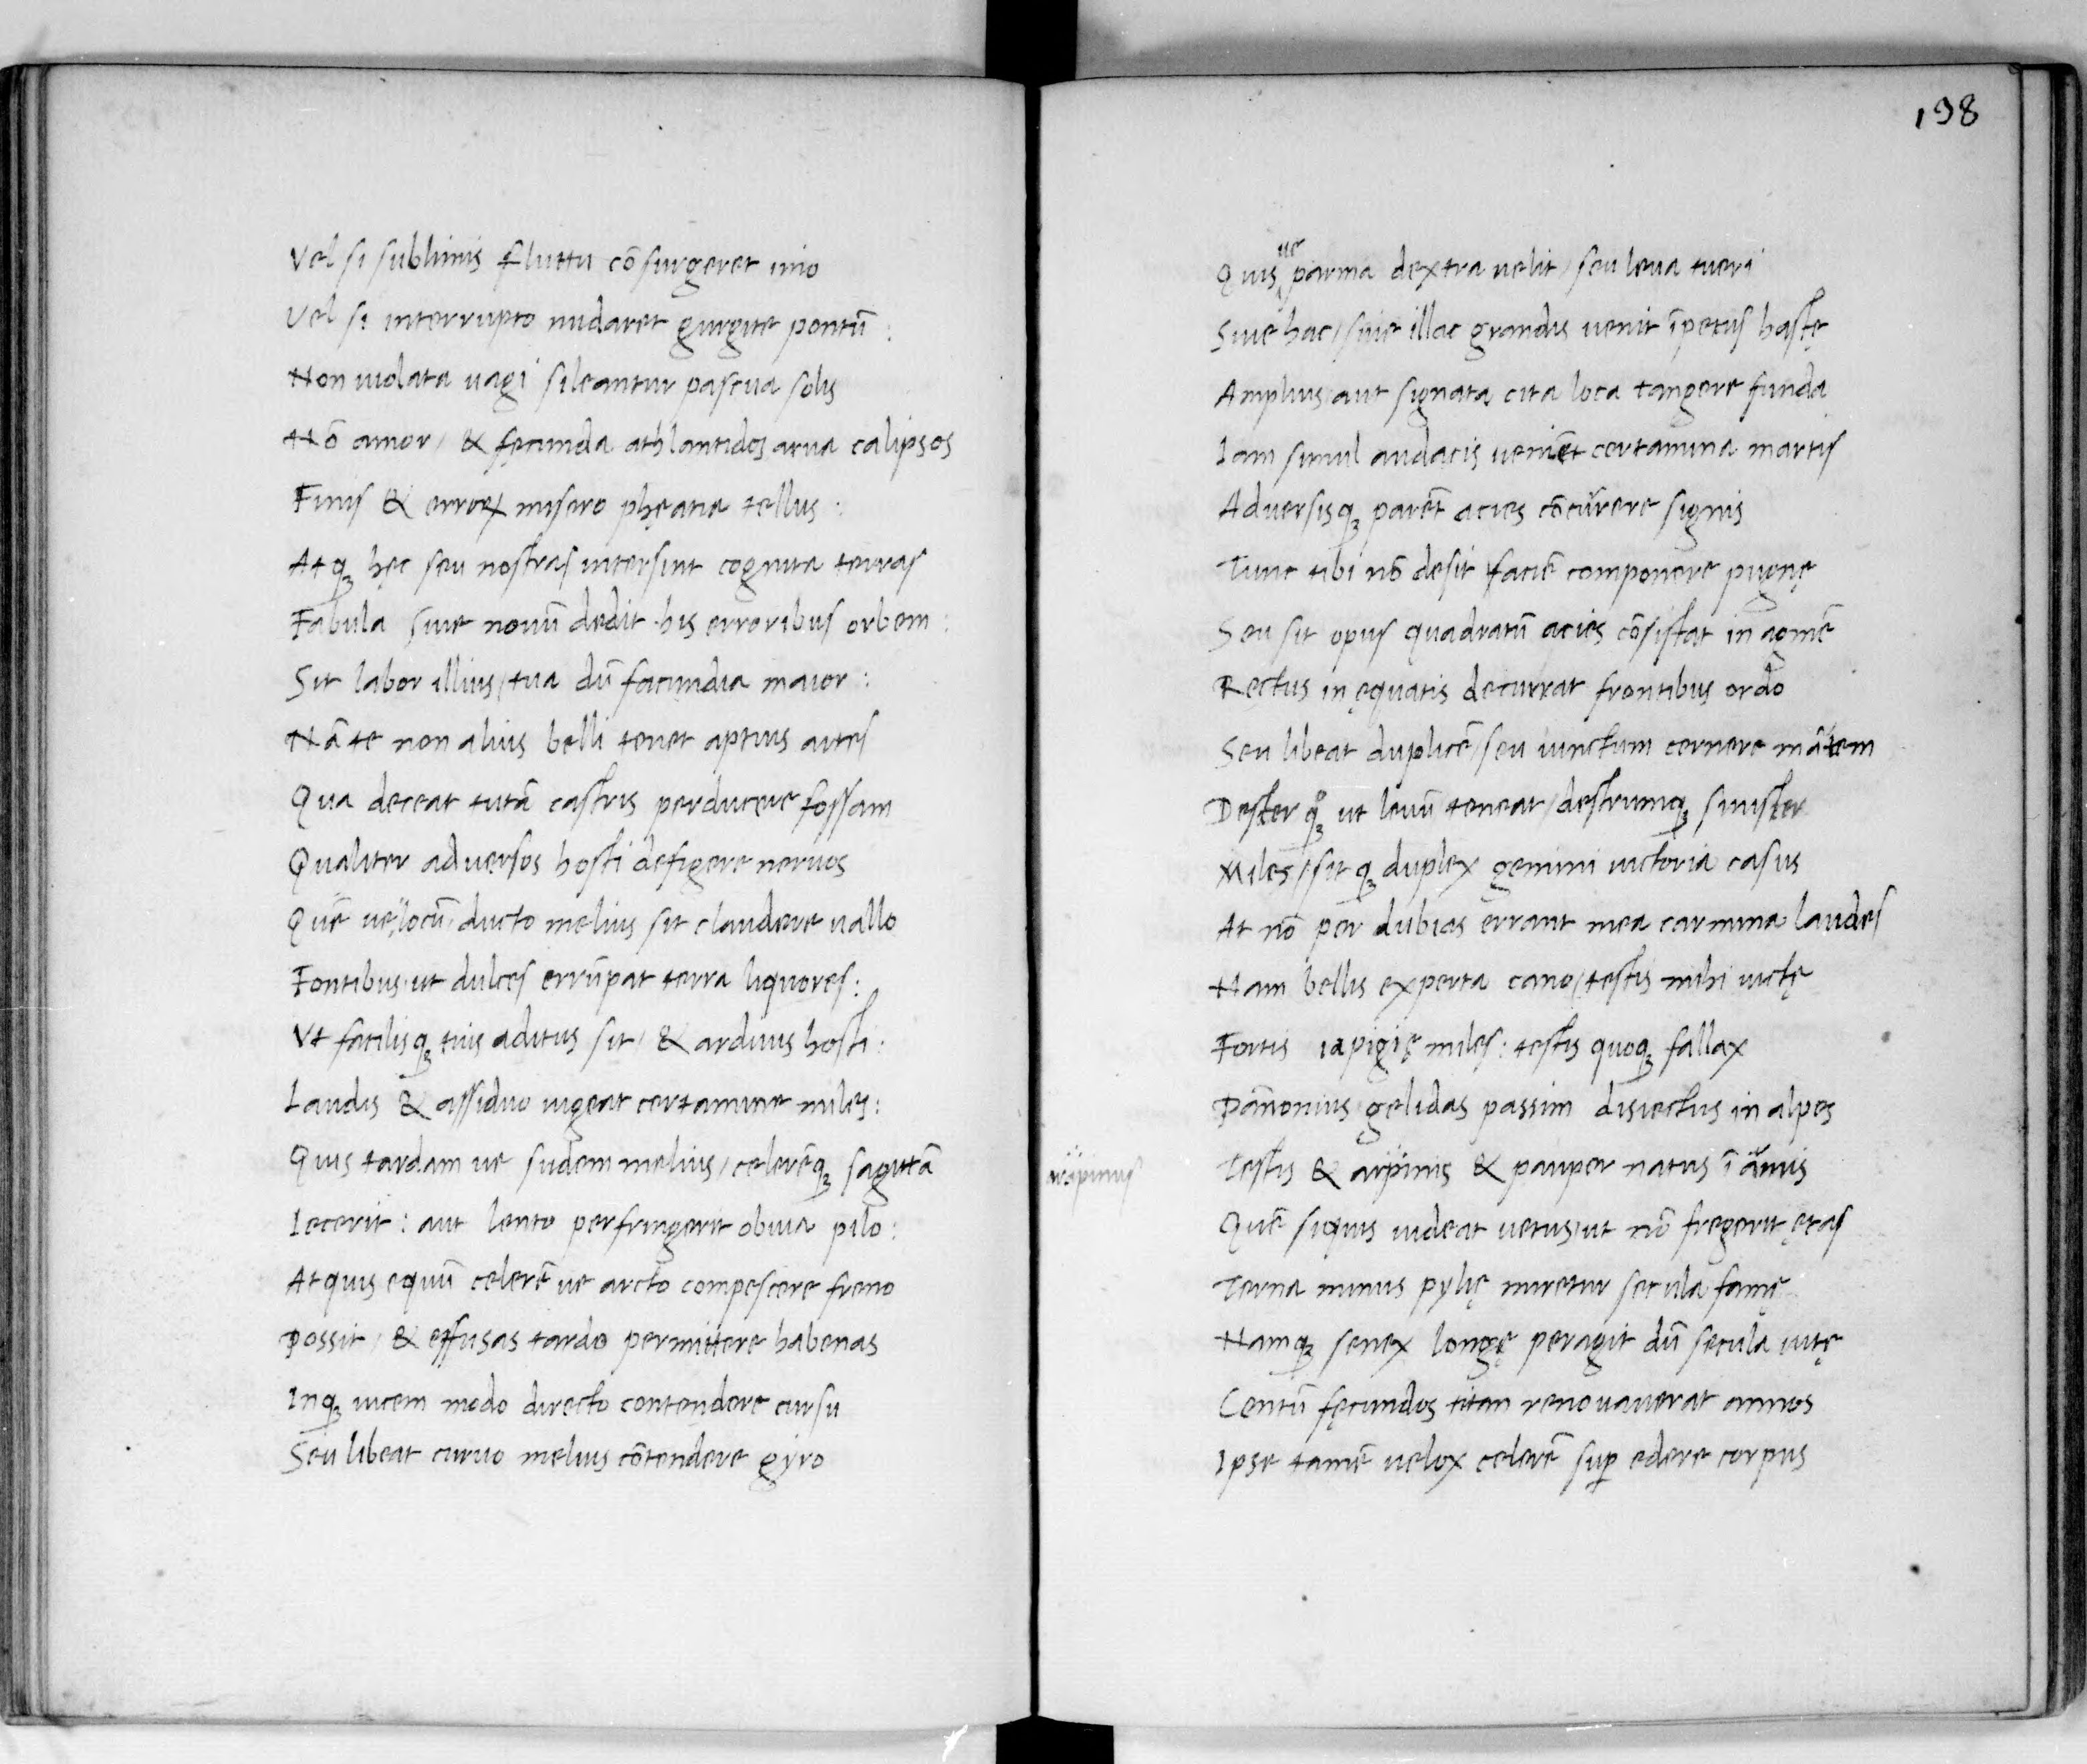 Vel si sublimis fluctu cō surgeret imo
Vel si interrupto nudaret gurgite pontū :
Non uiolata uagi sileantur pascua solis
Nō amor / & fęcunda athlantidos arua calipsos
Finis & erroꝝ misero phęatia tellus :
Atqꝫ hęc seu nostras intersint cognita terras
Fabula siue nouū dedit his erroribus orbem :
Sit labor illius / tua dū facundia maior :
Nā te non alius belli tenet aptius artes
Qua deceat tutā castris perducere fossam
Qualiter aduersos hosti defigere neruos
Quē ue locū ducto melius sit claudere uallo
Fontibus ut dulces errūpat terra liquores :
Vt facilisqꝫ tuis aditus sit / & arduus hosti :
Laudis & assiduo uigeat certamine miles :
Quis tardam ue sudem melius / celerēqꝫ sagittā
Iecerit : aut lento perfringerit obuia pilo :
At quis equū celerē ue arcto compescere freno
Possit / & effusas tardo permittere habenas
Inqꝫ uicem modo directo contendere cursu
Seu libeat curuo melius cōtendere gyro
198
Quis ue parma dextra uelit / seu leua tueri
Siue hac / siue illac grandis uenit īpetus hastę
Amplius / aut signata cita loca tangere funda
Iam simul audacis ueniēt certamina martis
Aduersisqꝫ parēt acies cōcurrere signis
Tunc tibi nō desit faciē componere pugnę
Seu sit opus quadratū acies cōsistat in agmē
Rectus in ęquatis decurrat frontibus ordo
Seu libeat duplicē / seu iunctum cernere mārtem
Dester qꝫ ut leuū teneat / destrumqꝫ sinister
Miles / sit qꝫ duplex gemini uictoria casus
At nō per dubias errant mea carmina laudes
Nam bellis experta cano / testis mihi uictę
Fortis iapigię miles : testis quoqꝫ fallax
Pānonius gelidas passim disiectus in alpes
Testis & arpinis & pauper natus ī aruis
Quē siquis uideat uetus ut nō fregerit ętas
Terna minus pylię miretur secula famę
Namqꝫ senex longę peragit dū secula uitę
Centū fęcundos titan renouauerat annos
Ipse tamē uelox celerē sup edere corpus